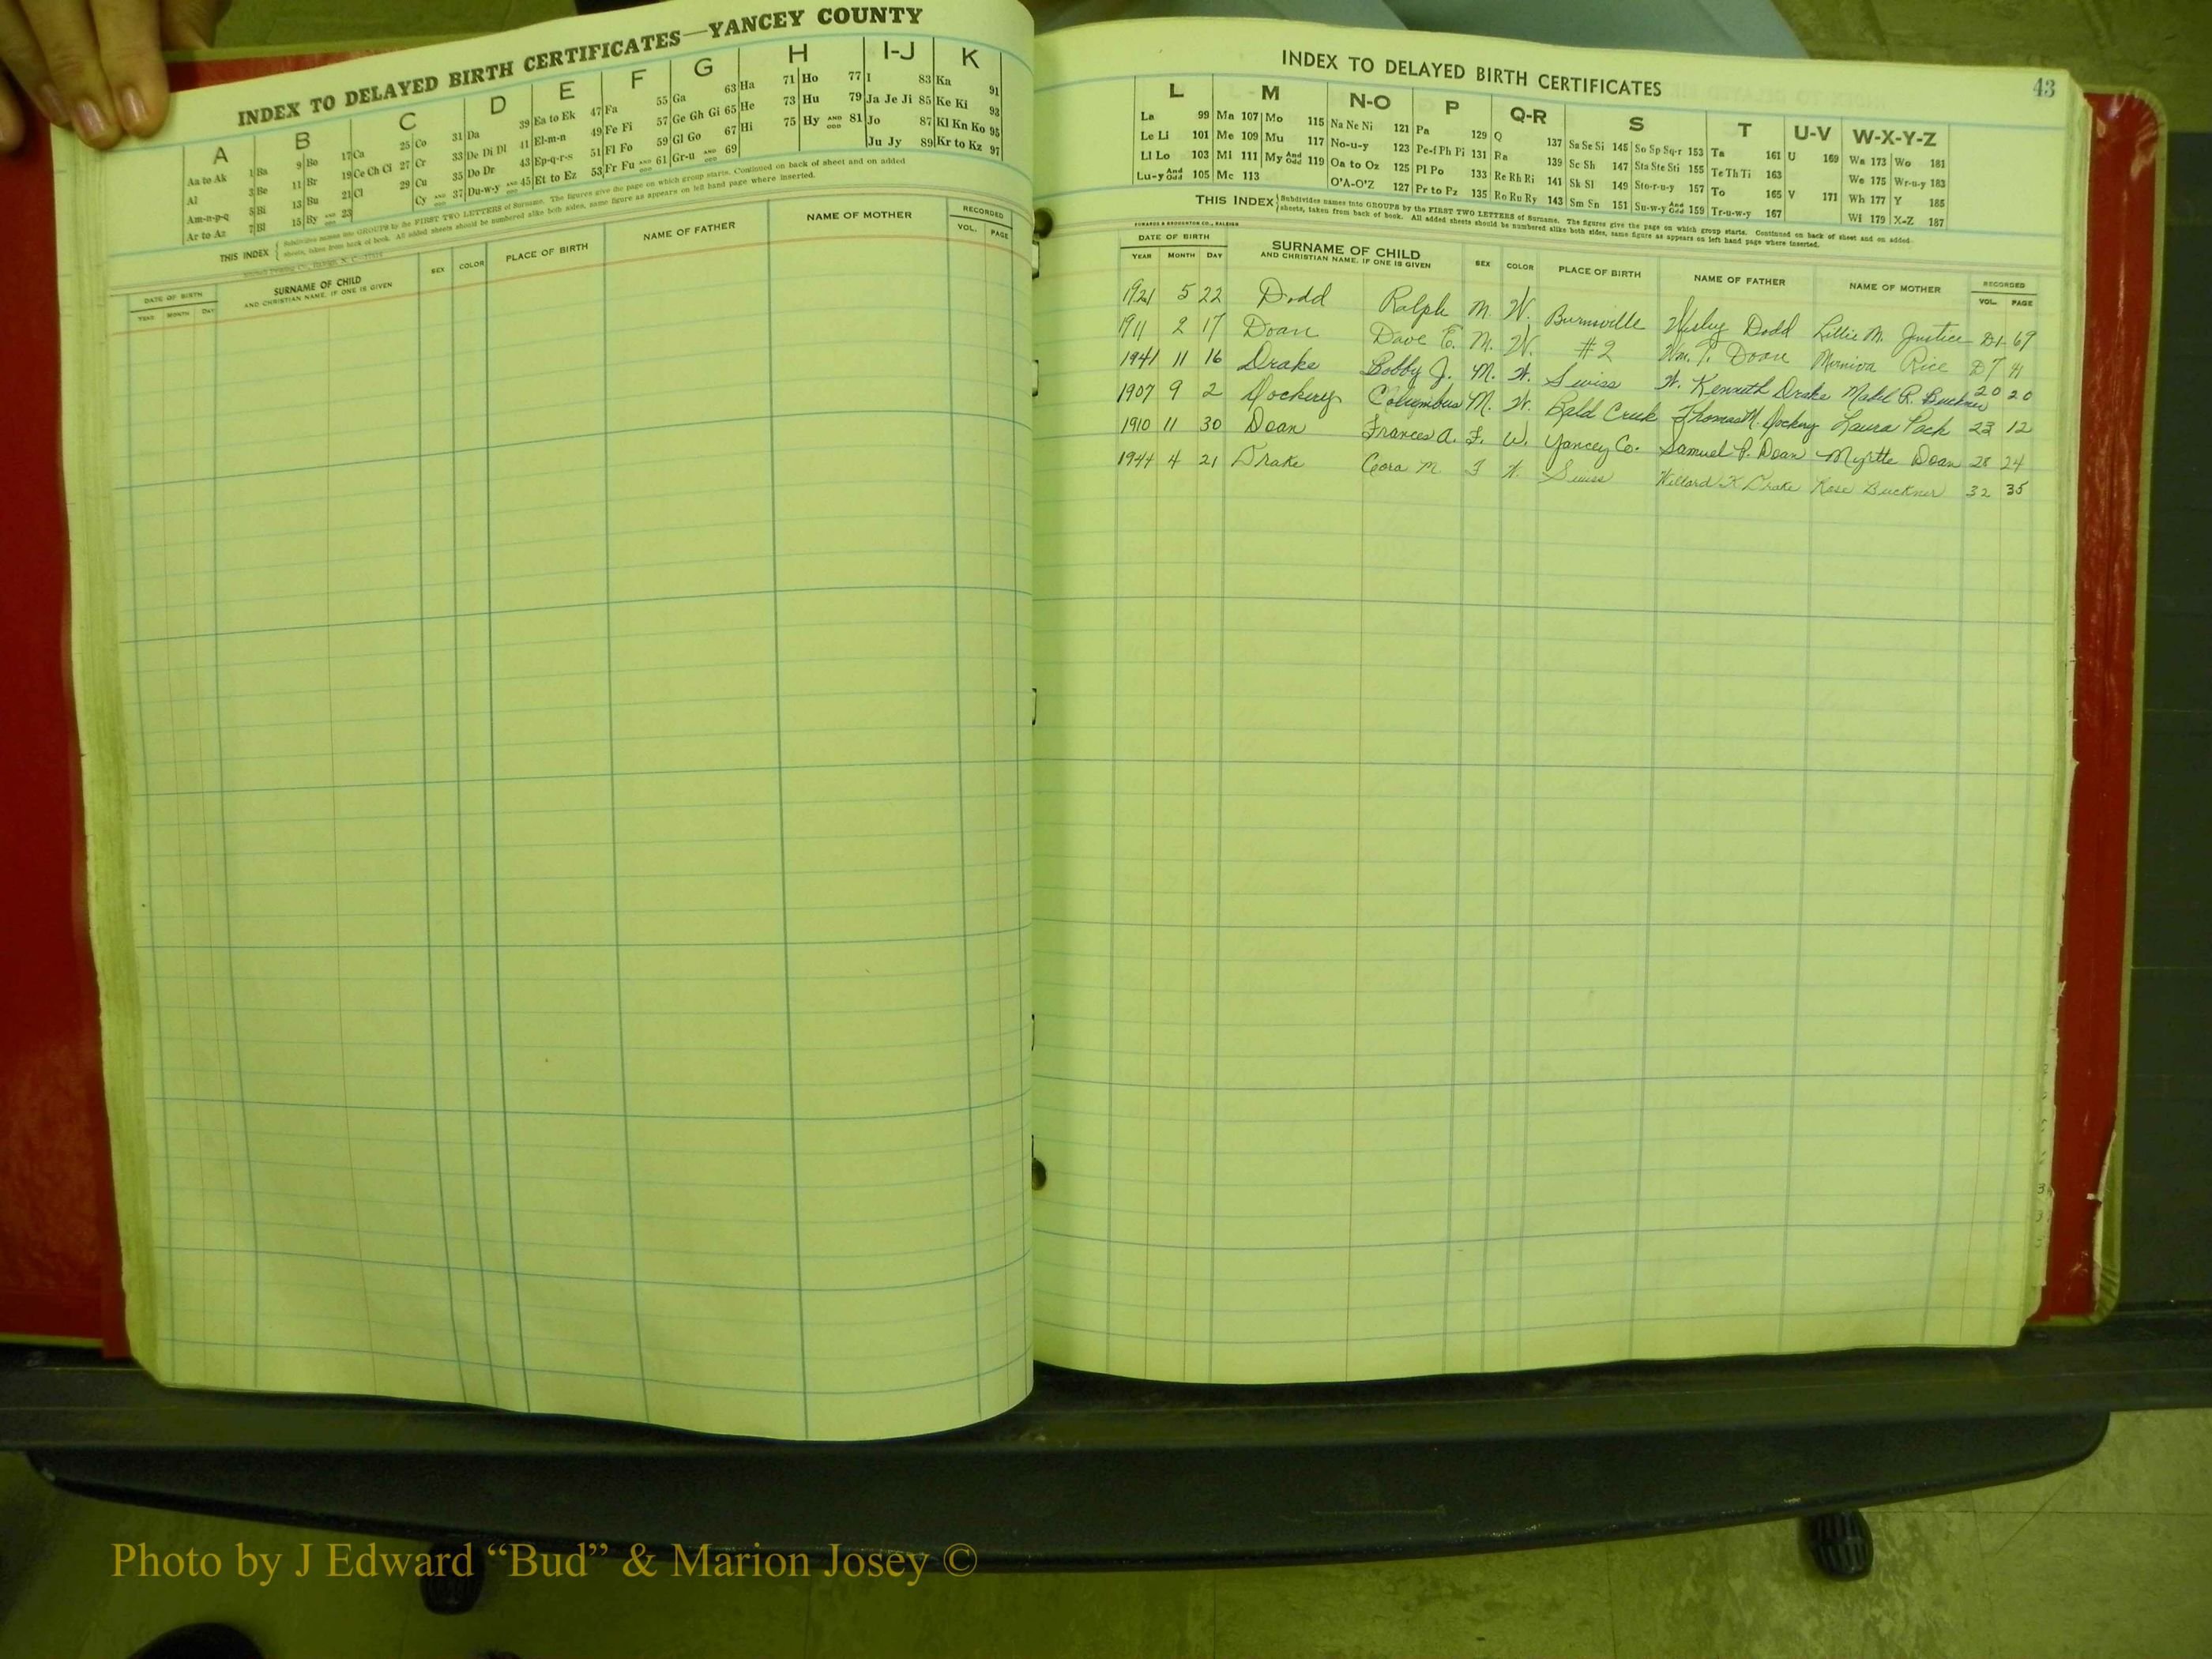 INDEX TO DELAYED BIRTH CERTIFICATES—YANCEY COUNTY
A B C D E F G H I-J K
Aa to Ak 1 Ba 9 Bo 17 Ca 25 Co 31 Da 39 Ea to Ek 47 Fa 55 Ga 63 Ha 71 Ho 77 I 83 Ka 91
Al 3 Be 11 Br 19 Ce Ch Ci 27 Cr 33 De Di Dl 41 El-m-n 49 Fe Fi 57 Ge Gh Gi 65 He 73 Hu 79 Ja Je Ji 85 Ke Ki 93
Am-n-p-q 5 Bi 13 Bu 21 Cl 29 Cu 35 Do Dr 43 Ep-q-r-s 51 Fl Fo 59 Gl Go 67 Hi 75 Hy AND ODD 81 Jo 87 Kl Kn Ko 95
Ar to Az 7 Bl 15 By AND ODD 23 Cy AND ODD 37 Du-w-y AND ODD 45 Et to Ez 53 Fr Fu AND ODD 61 Gr-u AND ODD 69 Ju Jy 89 Kr to Kz 97
THIS INDEX { Subdivides names into GROUPS by the FIRST TWO LETTERS of Surname. The figures give the page on which group starts. Continued on back of sheet and on added
sheets, taken from back of book. All added sheets should be numbered alike both sides, same figure as appears on left hand page where inserted.
DATE OF BIRTH SURNAME OF CHILD SEX COLOR PLACE OF BIRTH NAME OF FATHER NAME OF MOTHER RECORDED
YEAR MONTH DAY AND CHRISTIAN NAME, IF ONE IS GIVEN VOL. PAGE
INDEX TO DELAYED BIRTH CERTIFICATES 43
L M N-O P Q-R S T U-V W-X-Y-Z
La 99 Ma 107 Mo 115 Na Ne Ni 121 Pa 129 Q 137 Sa Se Si 145 So Sp Sq-r 153 Ta 161 U 169 Wa 173 Wo 181
Le Li 101 Me 109 Mu 117 No-u-y 123 Pe-f Ph Pi 131 Ra 139 Sc Sh 147 Sta Ste Sti 155 Te Th Ti 163 We 175 Wr-u-y 183
Ll Lo 103 Mi 111 My And Odd 119 Oa to Oz 125 Pl Po 133 Re Rh Ri 141 Sk Sl 149 Sto-r-u-y 157 To 165 V 171 Wh 177 Y 185
Lu-y And Odd 105 Mc 113 O'A-O'Z 127 Pr to Pz 135 Ro Ru Ry 143 Sm Sn 151 Su-w-y And Odd 159 Tr-u-w-y 167 Wi 179 X-Z 187
THIS INDEX { Subdivides names into GROUPS by the FIRST TWO LETTERS of Surname. The figures give the page on which group starts. Continued on back of sheet and on added
sheets, taken from back of book. All added sheets should be numbered alike both sides, same figure as appears on left hand page where inserted.
EDWARDS & BROUGHTON CO., RALEIGH
DATE OF BIRTH SURNAME OF CHILD SEX COLOR PLACE OF BIRTH NAME OF FATHER NAME OF MOTHER RECORDED
YEAR MONTH DAY AND CHRISTIAN NAME, IF ONE IS GIVEN VOL. PAGE
1921 5 22 Dodd Ralph M. W. Burnsville Wesley Dodd Lillie M. Justice D1- 69
1911 2 17 Doan Dave E. M. W. #2 Wm. T. Doan Rice D7 41
1941 11 16 Drake Bobby J. M. W. Swiss W. Kenneth Drake Mabel R. Buckner 20 20
1907 9 2 Dockery Columbus M. W. Bald Creek Thomas M. Dockery Laura Pack 23 12
1910 11 30 Doan Frances A. F. W. Yancey Co. Samuel P. Doan Myrtle Doan 28 24
1944 4 21 Drake Cora M. F W. Swiss Willard K Drake Rose Buckner 32 35
Photo by J Edward “Bud” & Marion Josey ©